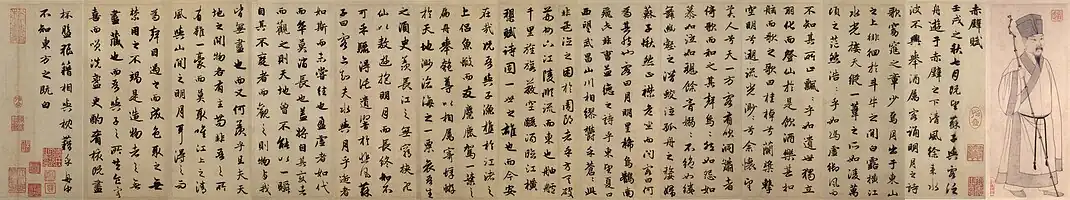 赤壁賦
壬戌之秋七月既望蘇子與客泛
舟遊于赤壁之下清風徐來水
波不興舉酒屬客誦明月之詩
歌窈窕之章少焉月出于東山
之上徘徊於斗牛之間白露橫江
水光接天縱一葦之所如凌萬
頃之茫然浩浩乎如馮虛御風而
不知其所止飄飄乎如遺世獨立
羽化而登仙於是飲酒樂甚扣
舷而歌之歌曰桂棹兮蘭槳擊
空明兮泝流光渺渺兮余懷望
美人兮天一方客有吹洞簫者
倚歌而和之其聲嗚嗚然如怨如
慕如泣如訴餘音嫋嫋不絕如縷
舞幽壑之潛蛟泣孤舟之嫠婦
蘇子愀然正襟危坐而問客曰何
為其然也客曰月明星稀烏鵲南
飛此非曹孟德之詩乎東望夏口
西望武昌山川相繆鬱乎蒼蒼此
非孟德之困於周郎者乎方其破
荊州下江陵順流而東也舳艫
千里旌旗蔽空釃酒臨江橫
槊賦詩固一世之雄也而今安
在哉況吾與子漁樵於江渚之
上侶魚蝦而友麋鹿駕一葉之
扁舟舉匏尊以相屬寄蜉蝣
於天地渺滄海之一粟哀吾生
之須臾羨長江之無窮挾飛
仙以遨遊抱明月而長終知不
可乎驟得託遺響於悲風蘇
子曰客亦知夫水與月乎逝者
如斯而未嘗往也盈虛者如代
而卒莫消長也蓋將自其變者
而觀之則天地曾不能以一瞬
自其不變者而觀之則物與我
皆無盡也而又何羨乎且夫天
地之間物各有主苟非吾之所
有雖一毫而莫取惟江上之清
風與山間之明月耳得之而
為聲目遇之而成色取之無
禁用之不竭是造物者之無
盡藏也而吾與子之所共食客
喜而笑洗盞更酌肴核既盡
杯盤狼籍相與枕藉乎舟中
不知東方之既白